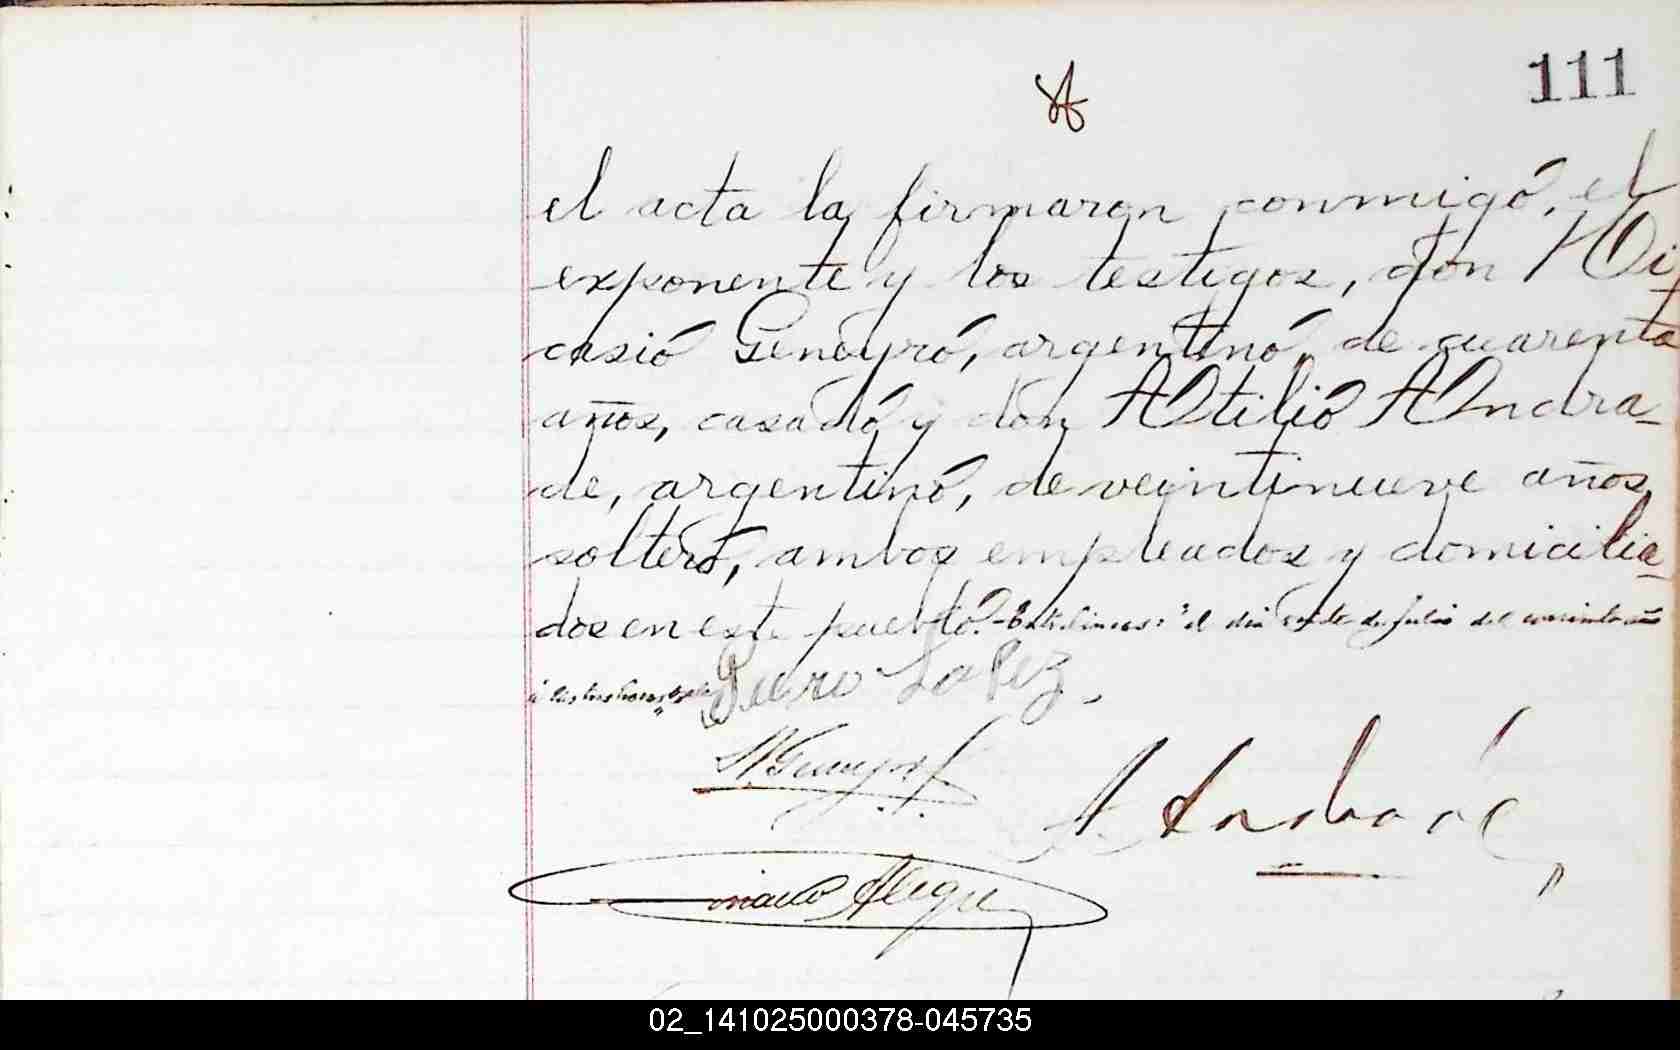 111
el acta la firmaron conmigo, el
exponente y los testigos, don Ni-
casio Geneyro, argentino, de cuarenta
años, casado y don Atilio Andra-
de, argentino, de veintinueve años,
soltero, ambos empleados y domicilia-
dos en este puerto. - Entrelíneas: "el día siete de julio del corriente año
Pedro Lopez.
N Geneyro
A. Andrade
02_141025000378-045735